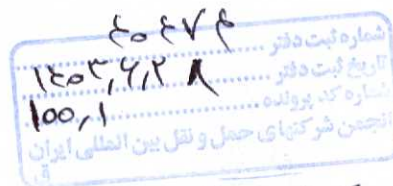 شماره ثبت دفتر ........ ۴۰۴۷۶
تاریخ ثبت دفتر ........ ۱۴۰۳,۶,۲۸
شماره کد پرونده ........ ۱۰۰,۱
انجمن شرکتهای حمل و نقل بین المللی ایران